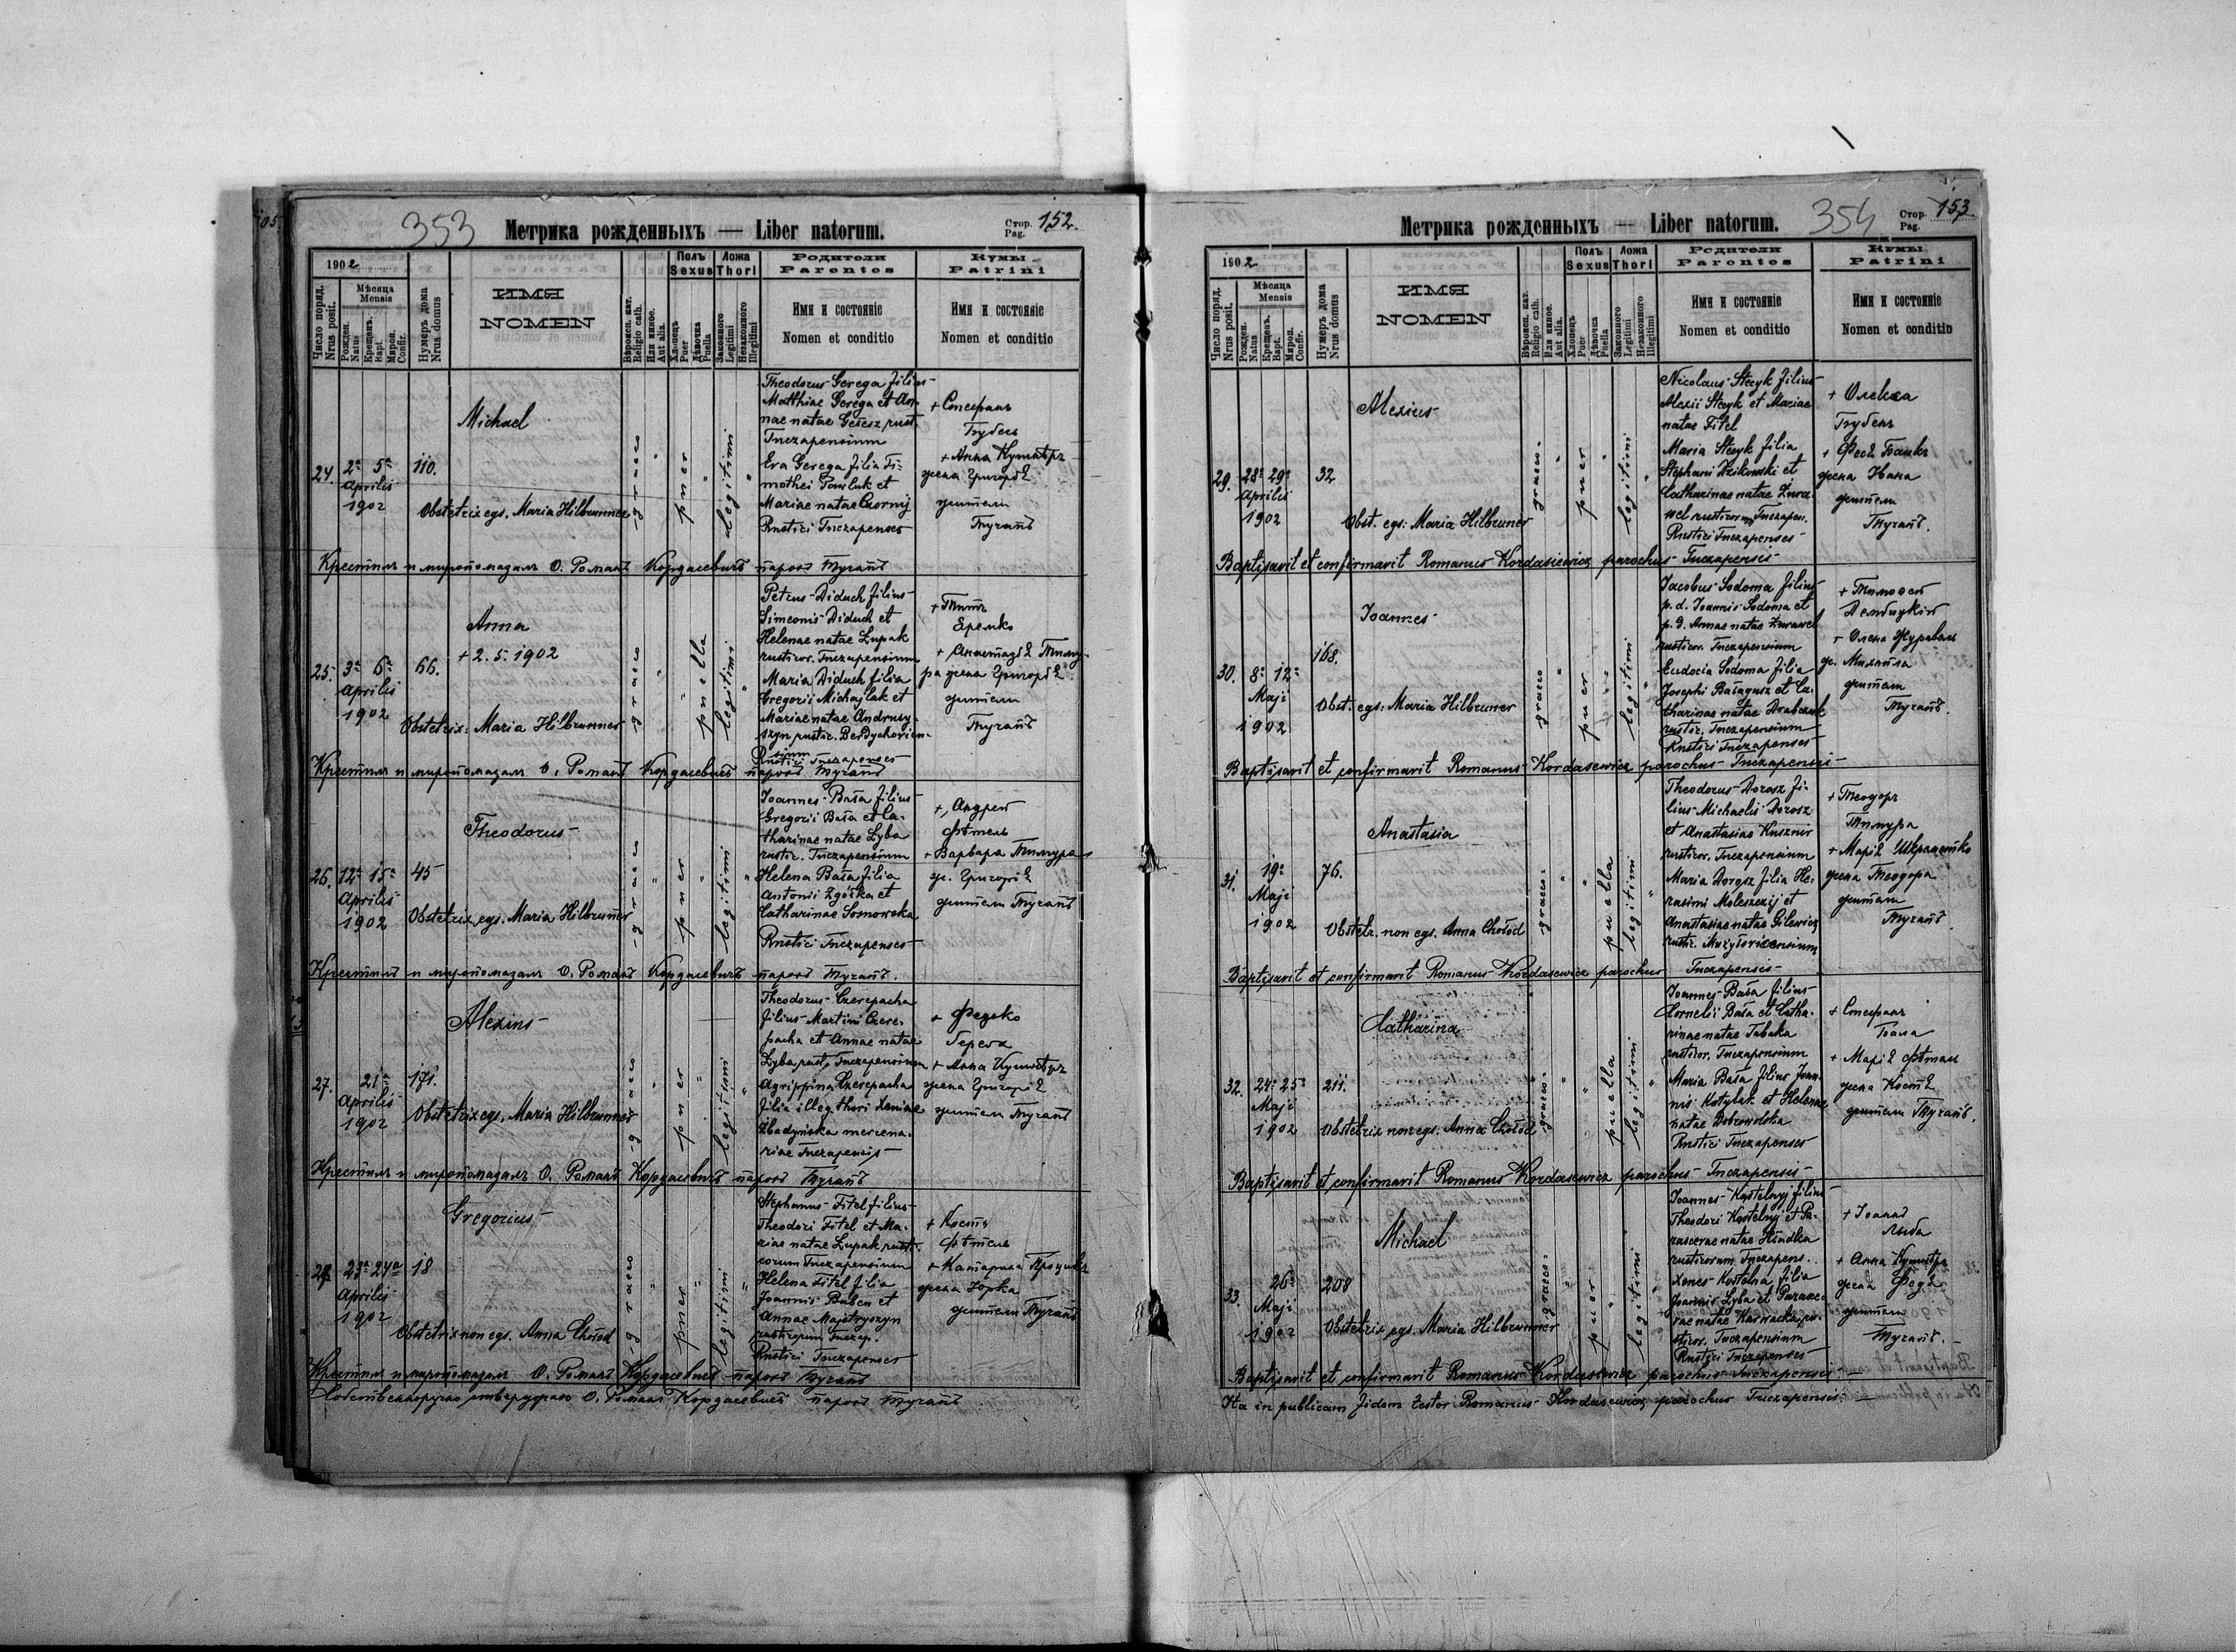 353
Метрика рожденныхъ — Liber natorum.
Стор. Pag. 152.
1902
Число поряд. Nrus posit.
Мѣсяца Mensis
Рожден. Natus
Крещенъ. Bapt.
Миров. Confir.
Нумеръ дома Nrus domus
ИМЯ
NOMEN
Вѣроисп. кат. Religio cath.
Или иное. Aut alia.
Полъ Sexus
Хлопецъ Puer
Дѣвочка Puella
Ложа Thori
Законного Legitimi
Незаконного Illegitimi
Родители
Parentes
Имя и состояніе
Nomen et conditio
Кумы
Patrini
Имя и состояніе
Nomen et conditio
24. 2a 5a Aprilis 1902
110.
Michael
Obstetrix egs. Maria Hilbrunner
graeco
puer
legitimi
Theodorus Gerega filius
Matthiae Gerega et An-
nae natae Gelesz rust.
Tuczapensium
Eva Gerega filia Ti-
mothei Pawluk et
Mariae natae Czornij
Rustici Tuczapenses
+ Стефанъ
Бубень
+ Анна Кушнѣръ
жена Григорія
жители
Тучапъ
Крестилъ и миропомазалъ О. Романъ Кордасевичъ парохъ Тучапъ
25. 3a 6a Aprilis 1902
66.
Anna
+ 2.5.1902
Obstetrix: Maria Hilbrunner
graeco
puella
legitimi
Petrus Diduch filius
Simeonis Diduch et
Helenae natae Łupak
rusticor. Tuczapensium
Maria Diduch filia
Gregorii Michaylak et
Mariae natae Andrusy-
szyn rustic. Berdychovien-
sium
Rustici Tuczapenses
+ Титъ
Еремко
+ Анастазія Тиму-
ра жена Григорія
жители
Тучапъ
Крестилъ и миропомазалъ О. Романъ Кордасевичъ парохъ Тучапъ
26. 12a 15a Aprilis 1902
45
Theodorus
Obstetrix egs. Maria Hilbrunner
graeco
puer
legitimi
Joannes Bała filius
Gregorii Bała et Ca-
tharinae natae Łyba
rustic. Tuczapensium
Helena Bała filia
Antonii Zgórka et
Catharinae Sosnowska
Rustici Tuczapenses
+ Андрей
Фѣтель
+ Варвара Тимура
ж. Григорія
жители Тучапъ
Крестилъ и миропомазалъ О. Романъ Кордасевичъ парохъ Тучапъ.
27. 21a Aprilis 1902
171.
Alexius
Obstetrix egs. Maria Hilbrunner
graeco
puer
legitimi
Theodorus Czerepacha
filius Martini Czere-
pacha et Annae natae
Łyba rust. Tuczapensium
Agrippina Czerepacha
filia illeg thori Xeniae
Zbadyńska mercena-
riae Tuczapensis
+ Федько
Герега
+ Анна Кушнѣръ
жена Григорія
жители Тучапъ
Крестилъ и миропомазалъ О. Романъ Кордасевичъ парохъ Тучапъ
28. 23a 24a Aprilis 1902
18
Gregorius
Obstetrix non egs. Anna Chołod
graeco
puer
legitimi
Stephanus Fitel filius
Theodori Fitel et Ma-
riae natae Łupak rusti-
corum Tuczapensium
Helena Fitel filia
Joannis Buben et
Annae Majstryszyn
rusticorum Tuczap.
Rustici Tuczapenses
+ Костъ
Фѣтель
+ Катарина Процикъ
жена Юрка
жители Тучапъ
Крестилъ и миропомазалъ О. Романъ Кордасевичъ парохъ Тучапъ
Собственноручно утверждаю О. Романъ Кордасевичъ парохъ Тучапъ
354
Метрика рожденныхъ — Liber natorum.
Стор. Pag. 153
1902
Число поряд. Nrus posit.
Мѣсяца Mensis
Рожден. Natus
Крещенъ. Bapt.
Миров. Confir.
Нумеръ дома Nrus domus
ИМЯ
NOMEN
Вѣроисп. кат. Religio cath.
Или иное. Aut alia.
Полъ Sexus
Хлопецъ Puer
Дѣвочка Puella
Ложа Thori
Законного Legitimi
Незаконного Illegitimi
Родители
Parentes
Имя и состояніе
Nomen et conditio
Кумы
Patrini
Имя и состояніе
Nomen et conditio
29. 28a 29a Aprilis 1902
32
Alexius
Obst. egs: Maria Hilbruner
graeco
puer
legitimi
Nicolaus Stecyk filius
Alexii Stecyk et Mariae
natae Fitel
Maria Stecyk filia
Stephani Dzikowski et
Catharinae natae Żura-
wel rusticorum Tuczapen.
Rustici Tuczapenses
+ Олекса
Бубень
+ Фес
жена Ивана
жители
Тучапъ.
Baptisavit et confirmavit Romanus Kordasiewicz parochus Tuczapensis
30. 8a 12a Maji 1902
168.
Joannes
Obst. egs: Maria Hilbruner
graeco
puer
legitimi
Jacobus Sodoma filius
p. d. Joannis Sodoma et
p. d. Annae natae Żurawel
rusticor. Tuczapensium
Eudocia Sodoma filia
Josephi Bałagusz et Ca-
tharinae natae Drabczuk
rustic. Tuczapensium
Rustici Tuczapenses
+ Тимофей
+ Олена Журавель
ж. Михайла
жители
Тучапъ.
Baptisavit et confirmavit Romanus Kordasewicz parochus Tuczapensis
31. 19a Maji 1902
76.
Anastasia
Obstetr. non egs. Anna Chołod
graeco
puella
legitimi
Theodorus Dorosz fi-
lius Michaelis Dorosz
et Anastasiae Kusznir
rusticor. Tuczapensium
Maria Dorosz filia He-
rasimi Meleszczij et
Anastasiae natae Gilewicz
rustic. Mużyłovicensium
+ Теодоръ
Тимура
+ Марія
жена Теодора
жители
Тучапъ.
Baptisavit et confirmavit Romanus Kordasewicz parochus Tuczapensis
32. 24a 25a Maji 1902
211.
Catharina
Obstetrix non egs. Anna Chołod
graeco
puella
legitimi
Joannes Bała filius
Cornelii Bała et Catha-
rinae natae Tabaka
rusticor. Tuczapensium
Maria Bała filius Joan-
nis Kotylak et Helenae
natae Dobrowolska
Rustici Tuczapenses
+ Стефанъ
Бала
+ Марія Фѣтель
жена Костя
жители Тучапъ.
Baptisavit et confirmavit Romanus Kordasewicz parochus Tuczapensis
33. 26a Maji 1902
208
Michael
Obstetrix egs. Maria Hilbrunner
graeco
puer
legitimi
Joannes Kostelnyj filius
Theodori Kostelnyj et Pa-
rascevae natae Hladka
rusticorum Tuczapens.
Xenes Kostelna filia
Joannis Łyba et Parasce-
vae natae Kaswacka ru-
sticor. Tuczapensium
Rustici Tuczapenses
+ Іоаннъ
Лыба
+ Анна Кушнѣръ
жена Федя
жители
Тучапъ.
Baptisavit et confirmavit Romanus Kordasewicz parochus Tuczapensis
Ita in publicam fidem testor Romanus Kordasiewicz parochus Tuczapensis.